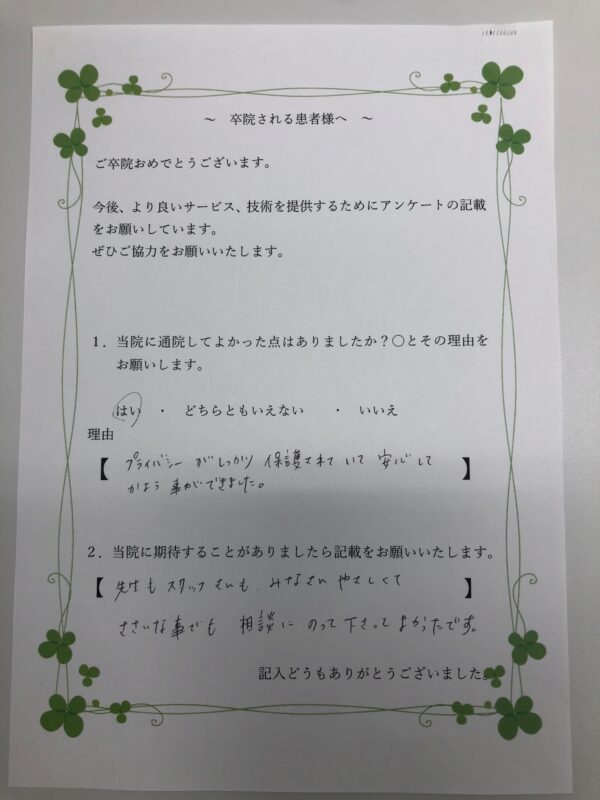 ～ 卒院される患者様へ ～
ご卒院おめでとうございます。
今後、より良いサービス、技術を提供するためにアンケートの記載
をお願いしています。
ぜひご協力をお願いいたします。
1．当院に通院してよかった点はありましたか？〇とその理由を
お願いします。
はい ・ どちらともいえない ・ いいえ
理由
【 プライバシーがしっかり保護されていて安心して 】
かよう事ができました。
2．当院に期待することがありましたら記載をお願いいたします。
【 先生もスタッフさんも、みなさんやさしくて 】
ささいな事でも相談にのって下さってよかったです。
記入どうもありがとうございました。